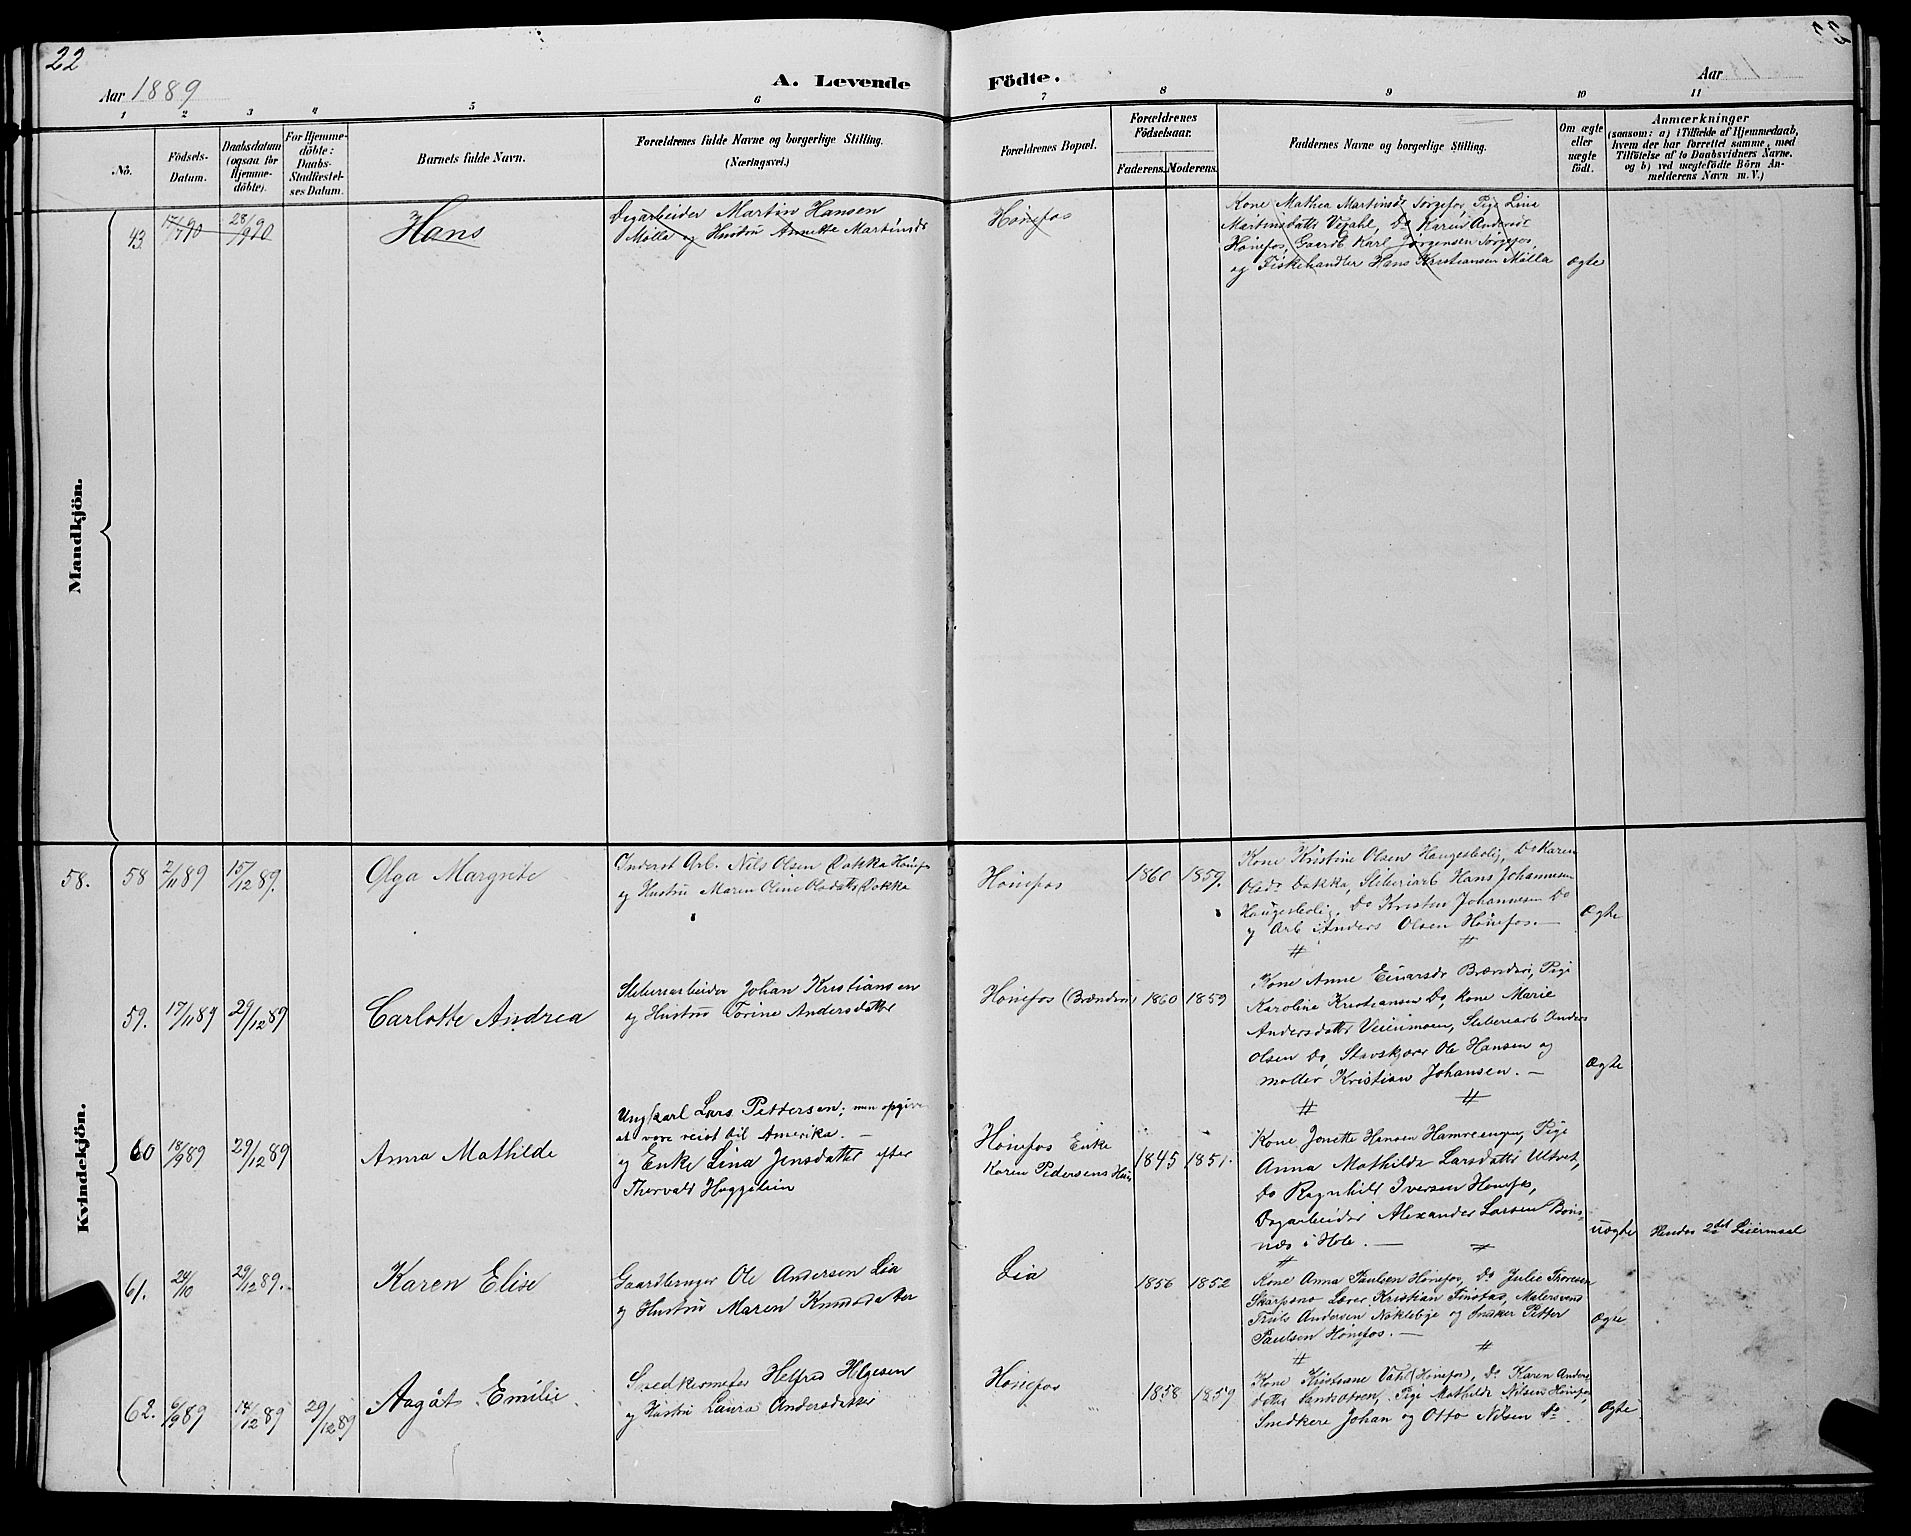 22
Aar 1889
A. Levende Födte.
Aar
1 2 3 4 5 6 7 8 9 10 11
No.
Födsels-Datum.
Daabsdatum (ogsaa för Hjemme-döbte).
For Hjemme-döbte: Daabs-Stadfæstel-ses Datum.
Barnets fulde Navn.
Forældrenes fulde Navne og borgerlige Stilling.
(Næringsvei.)
Forældrenes Bopæl.
Forældrenes Fødselsaar.
Faderens. Moderens.
Faddernes Navne og borgerlige Stilling.
Om ægte eller uægte födt.
Anmærkninger
(saasom: a) i Tilfælde af Hjemmedaab,
hvem der har forrettet samme, med
Tilföielse af to Daabsvidners Navne.
og b) ved uægtefödte Börn An-
melderens Navn m. V.)
Mandkjön.
43
17/7 90
28/9 90
Hans
Dagarbeider Martin Hansen
Mølla og Hustru Annette Martinsdr
Hönefos
Kone Mathea Martinsdr Sorgefos, Pige Lina
Martinsdatts Vegahl, Do Karen Andersdr
Hönefos, Gaardb. Karl Jørgensen Sorgefos,
og Fiskehandler Hans Kristiansen Mølla
Ægte
Kvindekjön.
58.
58
2/11 89
15/12 89.
Olga Margrite
Inderst Arb. Nils Olsen Dokka Hönefos
og Hustru Maren Oline Olsdatts Dokka
Hönefos
1860
1859.
Kone Kristine Olsen Haugesbolig, Do Karen
Olsdr Dokka, Sliberiarb Hans Johannesen
Haugesbolig. Do Kristen Johannesen Do
og Arb Anders Olsen Hönefos. —
Ægte
59.
17/11 89
29/12 89
Carlotte Andrea
Sliberiarbeider Johan Kristiansen
og Hustru Torine Andersdatter
Hönefos (Brænderi)
1860
1859
Kone Anne Einarsdr Brænderi, Pige
Karoline Kristiansen Do, Kone Marie
Andersdatter Veienmoen, Sliberiarb Anders
Olsen Do, Stavskjærer Ole Hansen og
møller Kristian Johansen. —
Ægte
60
18/9 89
29/12 89
Anna Mathilde
Ungkarl Lars Pettersen; men opgives
at være reist til Amerika. —
og Enke Lina Jensdatter efter
Thorvald Huggstein
Hönefos Enke
Karen Pedersens Hus
1845
1851.
Kone Jonette Hansen Hamreengen, Pige
Anna Mathilde Larsdatter Ultvet,
Do Ragnhild Iversen Hönefos,
Dagarbeider Alexander Larsen Bøns-
næs i Hole. —
uægte
Hendes 2det Leiermaal
61.
24/10
29/12 89.
Karen Elise
Gaardbruger Ole Andersen Lia
og Hustru Maren Knudsdatter
Lia
1856
1852
Kone Anna Paulsen Hönefos, Do Julie Thoresen
Skarpsno Lærer Kristian Finstad, Malersvend
Truls Andersen Nøklebye og Snedker Petter
Paulsen Hönefos. —
Ægte
62.
6/9 89
14/12 89
29/12 89
Aagåt Emilie
Snedkermester Helfred Helgesen
og Hustru Laura Andersdatter
Hönefos
1858
1859
Kone Kristiane Vahl (Hönefos), Do Karen Anders
datter Sandsotron, Pige Mathilde Nilsen Hönefos,
Snedkere Johan og Otto Nilsen Do.
Ægte